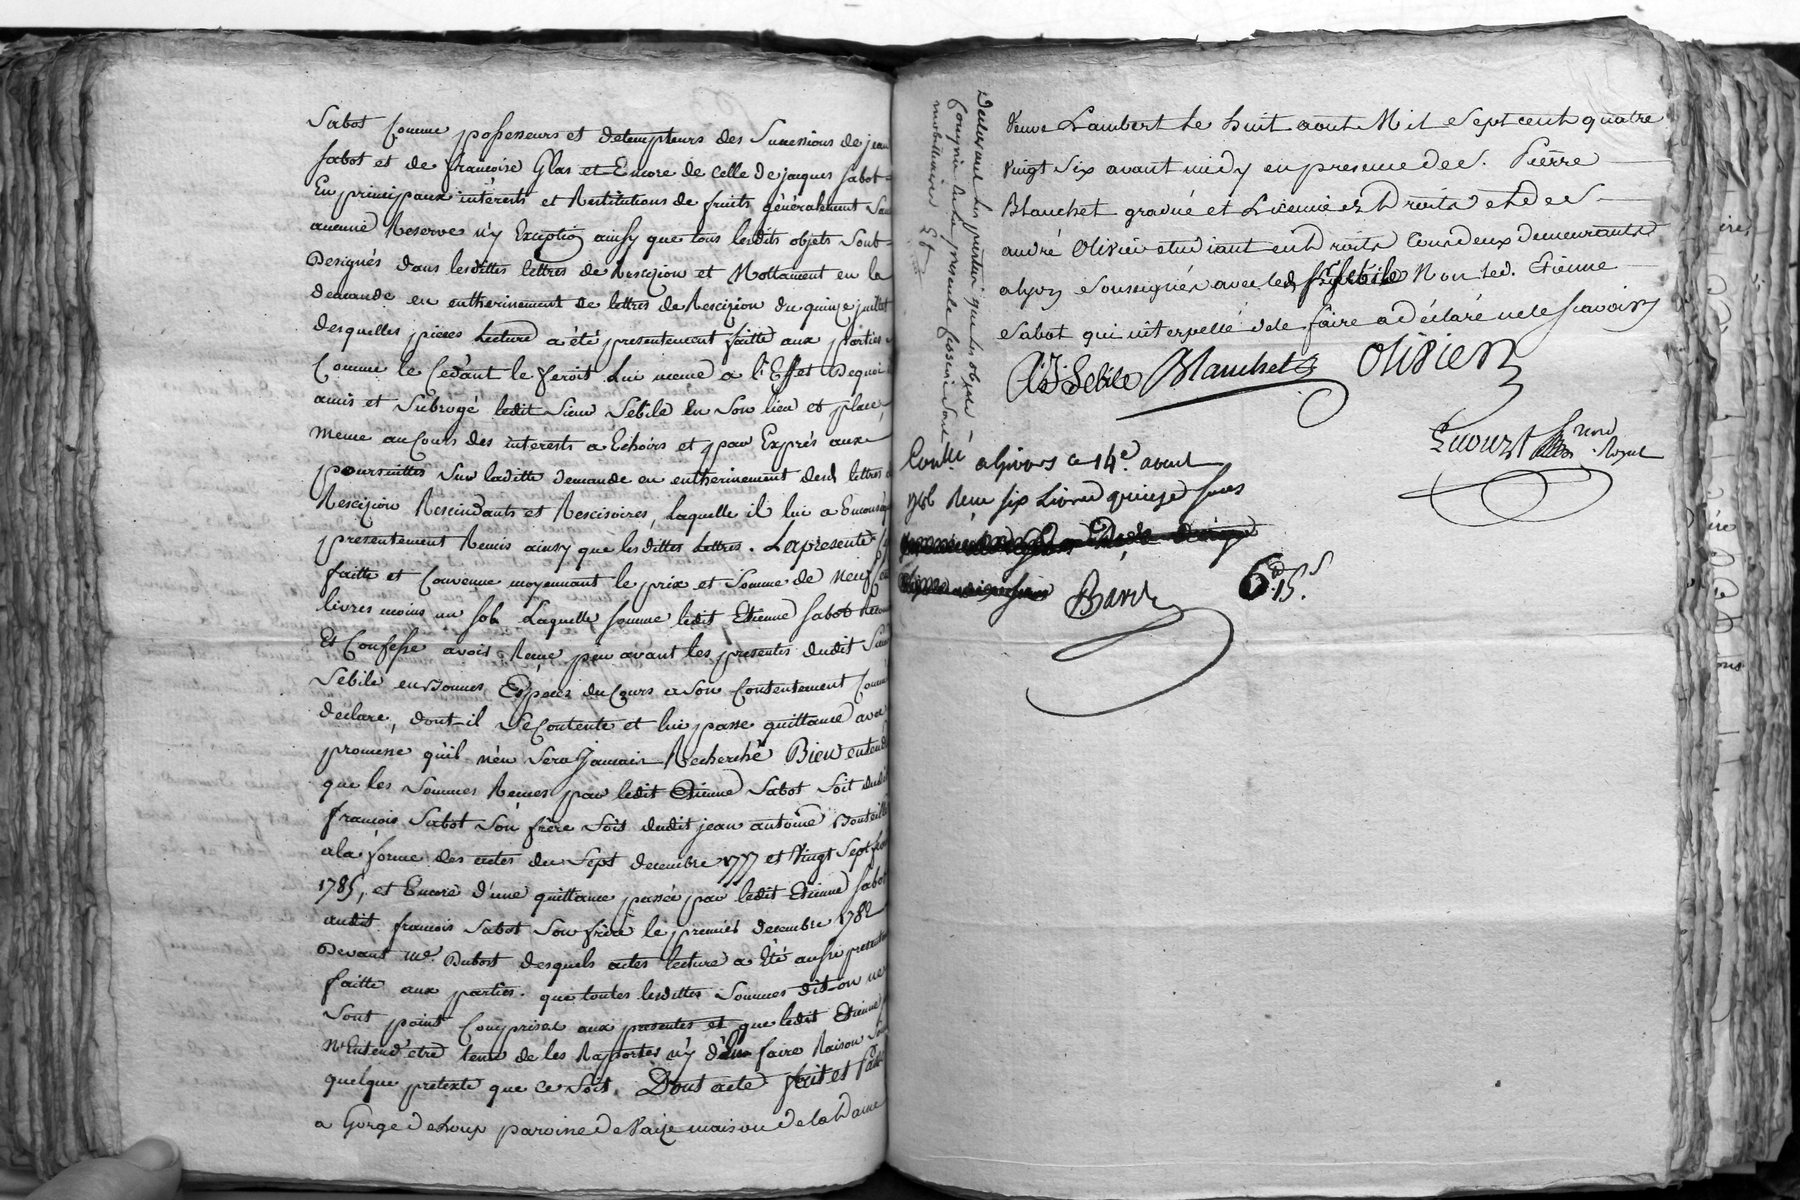 Sabot Comme possesseurs et detempteurs des Successions de jean
Sabot et de francoise Glas et Encore de Celle de jacques Sabot
En principaux interests et Restitutions de fruits généralement Sans
aucune Reserve n'y Exception ainsy que tous lesdits objets Sont
Designés dans lesdittes lettres de Rescizion et Nottament en la
demande en entherinement de lettres de Rescizion du quinze juillet
desquelles pieces Lecture a été presentement faitte aux parties
Comme le Cedant le feroit Lui meme a l'Effet Dequoi il
amis et Subrogé ledit Sieur Sebile En Son lieu et place,
meme au Cours des interests a Echoirs et par Exprés aux
poursuittes Sur laditte demande en entherinement desd lettres de
Rescizion Rescindants et Rescisoires, Laquelle il lui a Encore
presentement Remis ainsy que lesdittes Lettres. La présente
faitte et Convenue moyennant le prix et Somme de neuf Cent
livres moins un Sol Laquelle Somme ledit Etienne Sabot
Et Confesse avoir Recue peu avant les presentes dudit Sieur
Sebile en Bonnes Espèces du Cours a Son Contentement Comme
déclare, dont il Se Contente et lui passe quittance avec
promesse qu'il n'en Sera Jamais Recherché Bien entendu
que les Sommes Recues par ledit Etienne Sabot Soit dudit
francois Sabot Son frère Soit dudit jean antoine
a la forme des actes du Sept decembre 1777 et Vingt Sept
1785, et Encore d'une quittance passée par ledit Etienne Sabot
audit francois Sabot Son frère le premier decembre 1782
Devant me. Dubost desquels actes lecture a Eté aussi presentement
faitte aux parties. que toutes lesdittes Sommes dit-on ne
Sont point Comprises aux presentes et que ledit Etienne
N'Entend etre tenu de les Rapporter n'y d'en faire Raison Sous
quelque pretexte que ce Soit. Dont acte fait et Passé
a Gorge de Loup paroisse de Vaize maison de la Dame
Veuve Lambert le huit aout Mil Sept cent quatre
vingt Six avant midy en presence de S. Pierre
Blanchet gradué et Licencié ez Droits et de S.
andré Olivier etudiant en Droits tous deux demeurants
a lyon Soussignés avec led Sr Sebile Non led. Etienne
Sabot qui interpellé de le faire a déclaré ne le Scavoir
Declarant les parties que les objets
Compris dans la presente Cession Sont
mobilliaires Et
Sebile Blanchet Olivier
Nore Royal
Conlé a Givors ce 14e. aout
1786 Recu Six Livres quinze Sous
Bard
6# 15s.